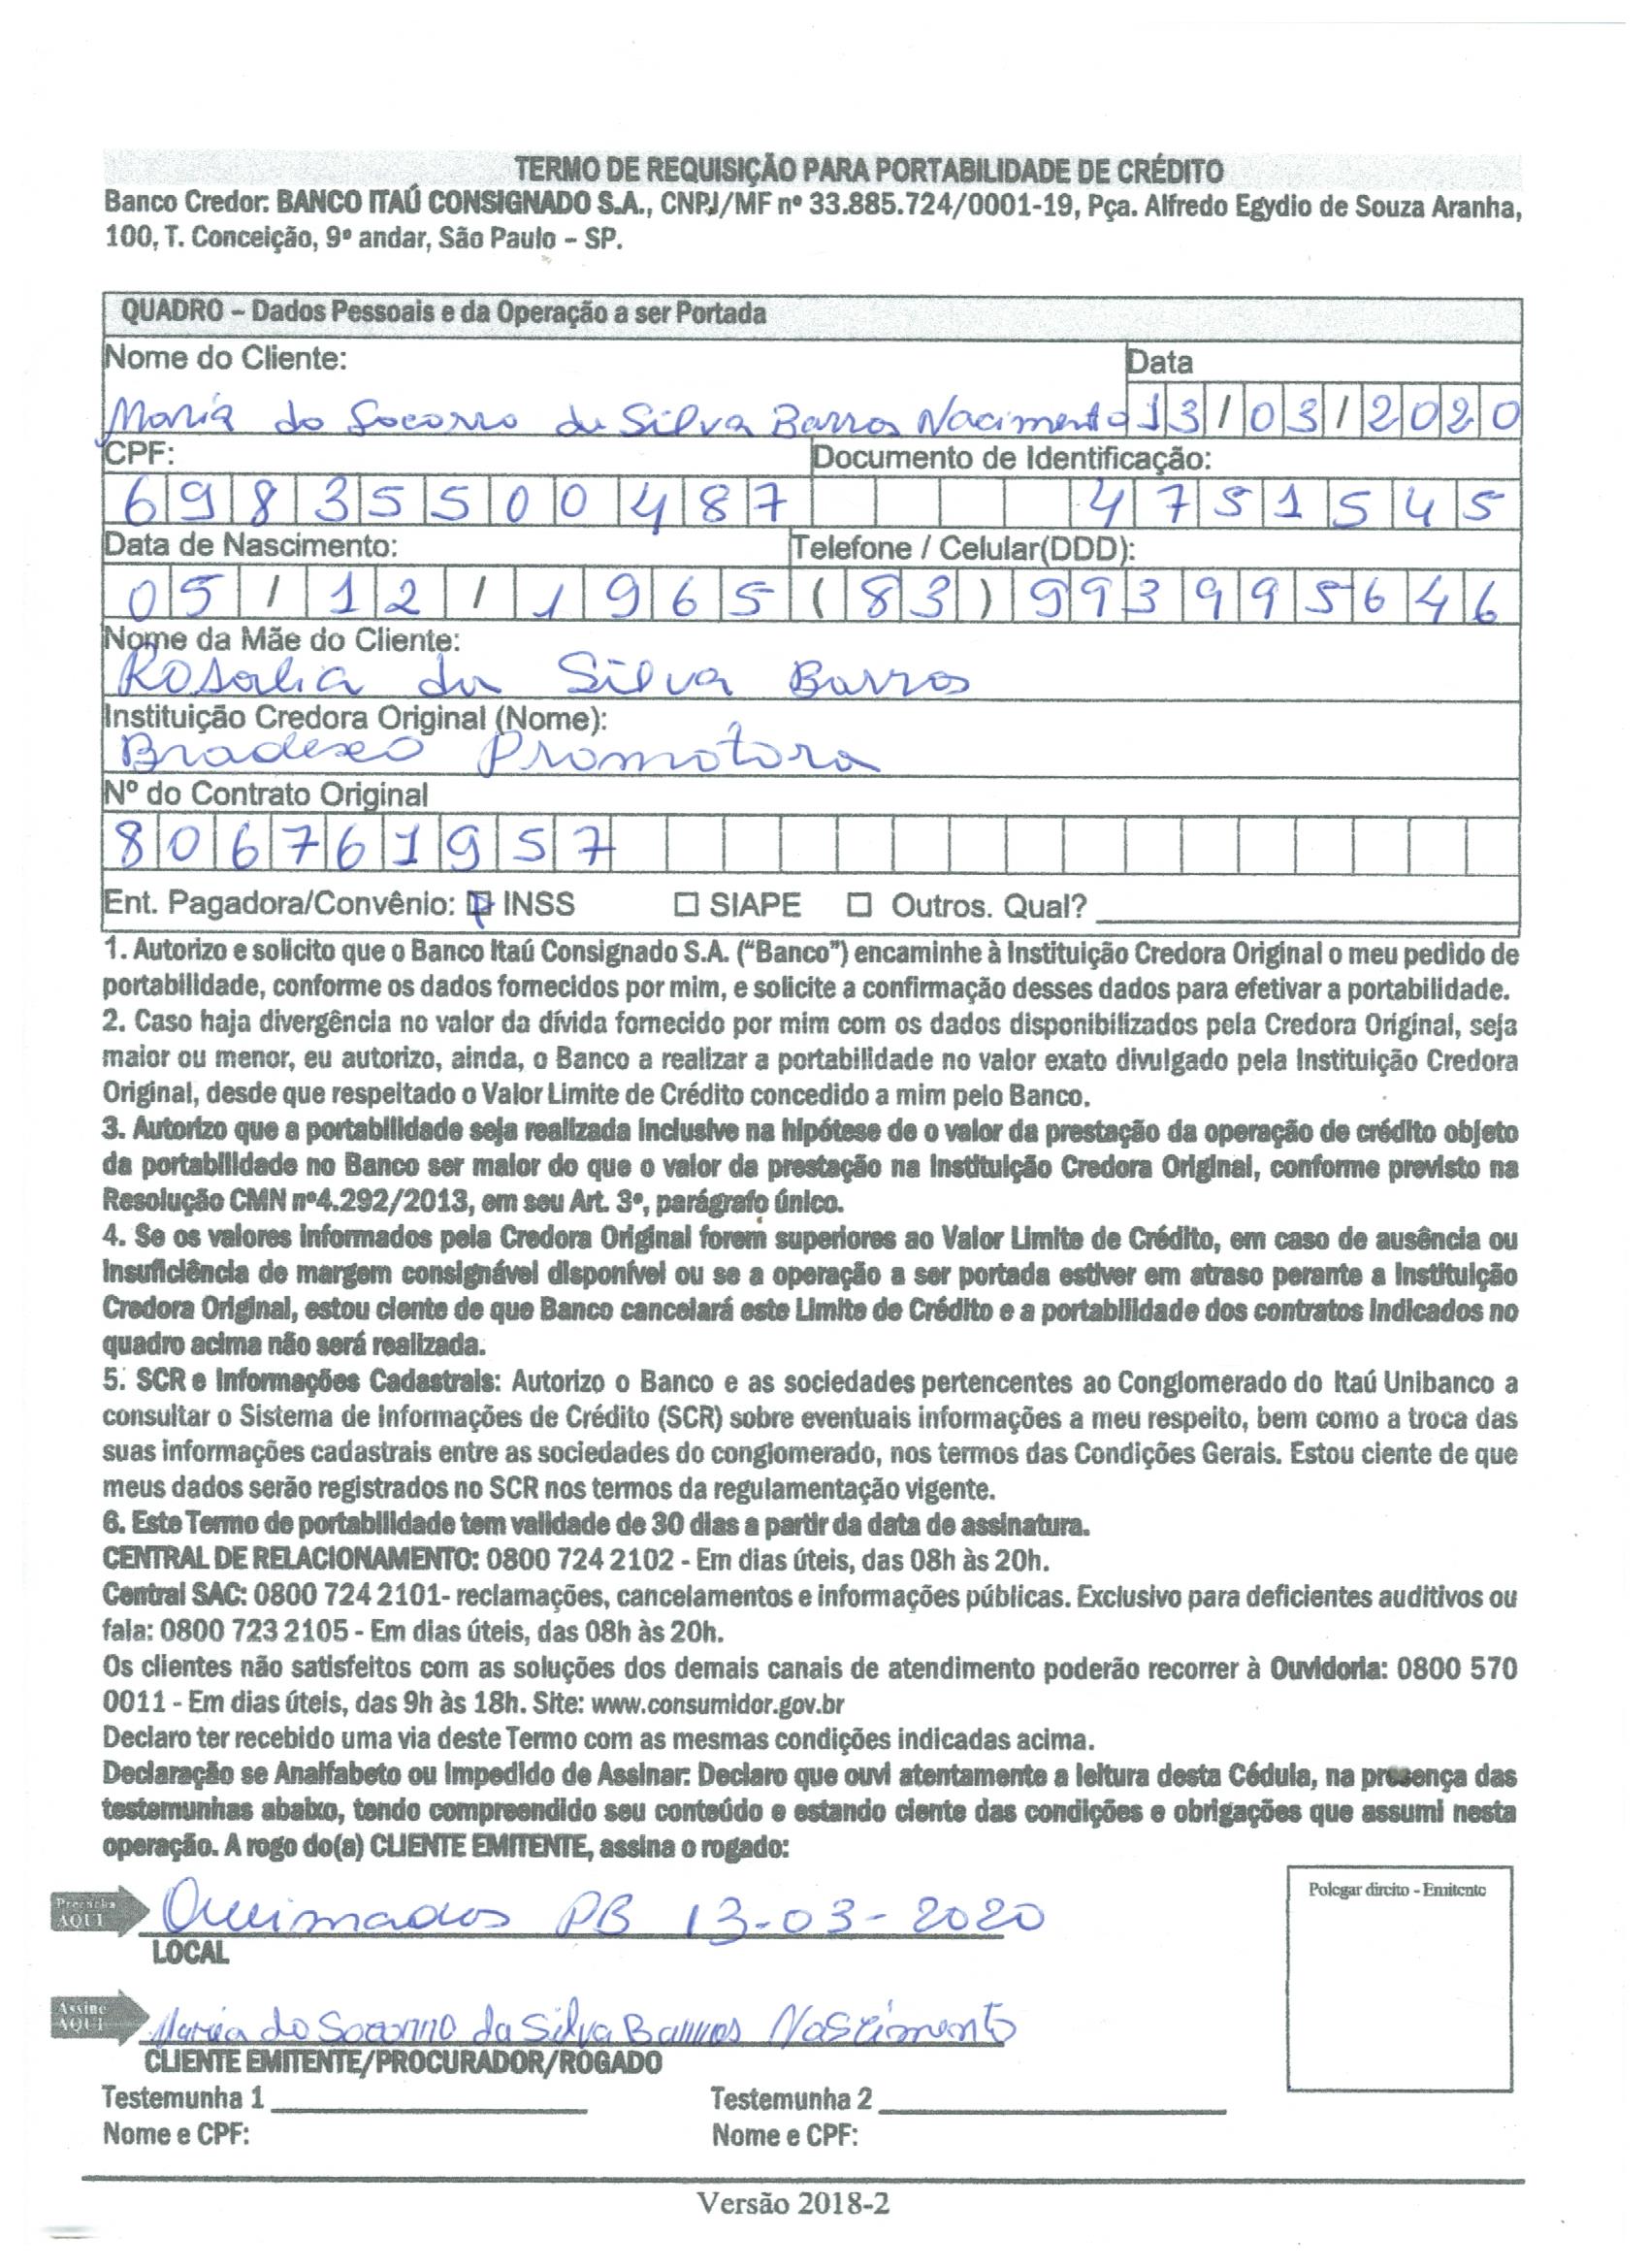 TERMO DE REQUISIÇÃO PARA PORTABILIDADE DE CRÉDITO
Banco Credor: BANCO ITAÚ CONSIGNADO S.A., CNPJ/MF nº 33.885.724/0001-19, Pça. Alfredo Egydio de Souza Aranha,
100, T. Conceição, 9º andar, São Paulo – SP.
QUADRO – Dados Pessoais e da Operação a ser Portada
Nome do Cliente: Data
Maria do Socorro da Silva Barros Nacimento 13/03/2020
CPF: Documento de Identificação:
69835500487 4751545
Data de Nascimento: Telefone / Celular(DDD):
05/12/1965 (83)993995646
Nome da Mãe do Cliente:
Rosalia da Silva Barros
Instituição Credora Original (Nome):
Bradesco Promotora
Nº do Contrato Original
806761957
Ent. Pagadora/Convênio: INSS SIAPE Outros. Qual?
1. Autorizo e solicito que o Banco Itaú Consignado S.A. (“Banco”) encaminhe à Instituição Credora Original o meu pedido de
portabilidade, conforme os dados fornecidos por mim, e solicite a confirmação desses dados para efetivar a portabilidade.
2. Caso haja divergência no valor da dívida fornecido por mim com os dados disponibilizados pela Credora Original, seja
maior ou menor, eu autorizo, ainda, o Banco a realizar a portabilidade no valor exato divulgado pela Instituição Credora
Original, desde que respeitado o Valor Limite de Crédito concedido a mim pelo Banco.
3. Autorizo que a portabilidade seja realizada inclusive na hipótese de o valor da prestação da operação de crédito objeto
da portabilidade no Banco ser maior do que o valor da prestação na Instituição Credora Original, conforme previsto na
Resolução CMN nº4.292/2013, em seu Art. 3º, parágrafo único.
4. Se os valores informados pela Credora Original forem superiores ao Valor Limite de Crédito, em caso de ausência ou
insuficiência de margem consignável disponível ou se a operação a ser portada estiver em atraso perante a Instituição
Credora Original, estou ciente de que Banco cancelará este Limite de Crédito e a portabilidade dos contratos indicados no
quadro acima não será realizada.
5. SCR e Informações Cadastrais: Autorizo o Banco e as sociedades pertencentes ao Conglomerado do Itaú Unibanco a
consultar o Sistema de Informações de Crédito (SCR) sobre eventuais informações a meu respeito, bem como a troca das
suas informações cadastrais entre as sociedades do conglomerado, nos termos das Condições Gerais. Estou ciente de que
meus dados serão registrados no SCR nos termos da regulamentação vigente.
6. Este Termo de portabilidade tem validade de 30 dias a partir da data de assinatura.
CENTRAL DE RELACIONAMENTO: 0800 724 2102 - Em dias úteis, das 08h às 20h.
Central SAC: 0800 724 2101- reclamações, cancelamentos e informações públicas. Exclusivo para deficientes auditivos ou
fala: 0800 723 2105 - Em dias úteis, das 08h às 20h.
Os clientes não satisfeitos com as soluções dos demais canais de atendimento poderão recorrer à Ouvidoria: 0800 570
0011 - Em dias úteis, das 9h às 18h. Site: www.consumidor.gov.br
Declaro ter recebido uma via deste Termo com as mesmas condições indicadas acima.
Declaração se Analfabeto ou Impedido de Assinar: Declaro que ouvi atentamente a leitura desta Cédula, na presença das
testemunhas abaixo, tendo compreendido seu conteúdo e estando ciente das condições e obrigações que assumi nesta
operação. A rogo do(a) CLIENTE EMITENTE, assina o rogado:
Polegar direito - Emitente
Preencha
AQUI
Queimados PB 13-03-2020
LOCAL
Assine
AQUI
Maria do Socorro da Silva Barros Nascimento
CLIENTE EMITENTE/PROCURADOR/ROGADO
Testemunha 1 Testemunha 2
Nome e CPF: Nome e CPF:
Versão 2018-2